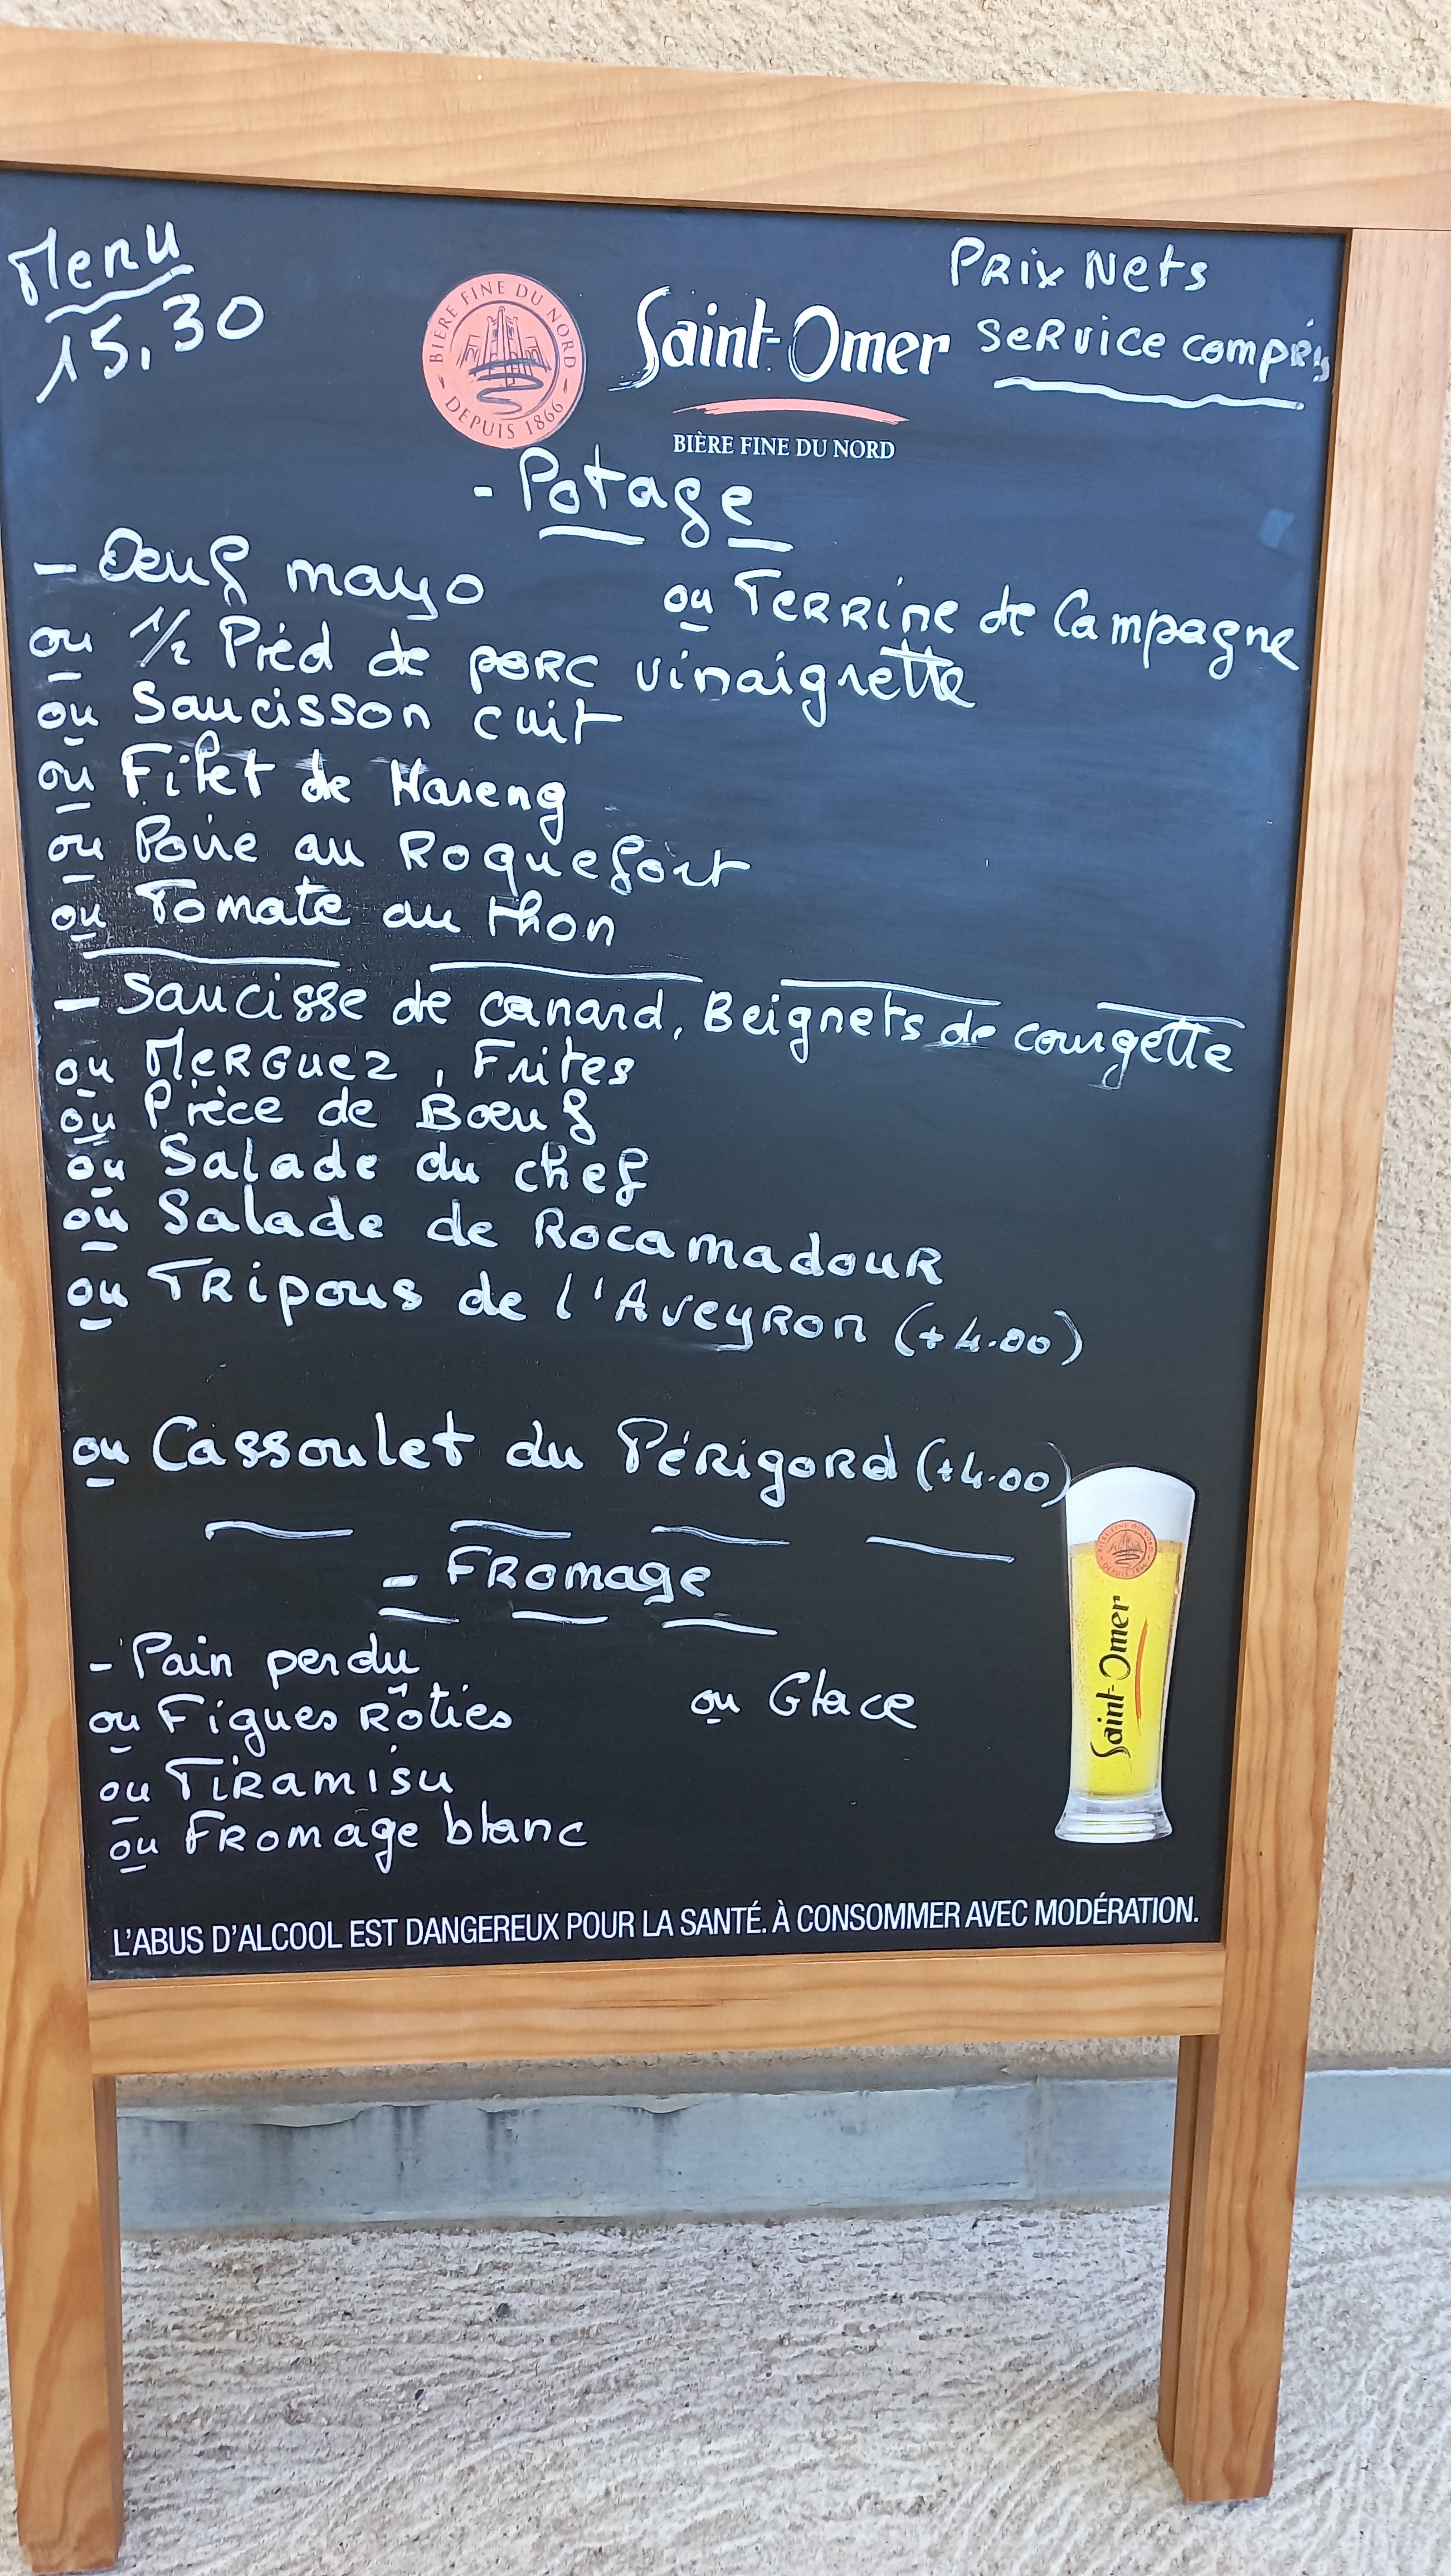 Menu
15,30
BIÈRE FINE DU NORD
DEPUIS 1866
Saint-Omer
BIÈRE FINE DU NORD
PRix Nets
SeRvice compris
- Potage
- Oeuf mayo
ou Terrine de Campagne
ou 1/2 Pied de porc vinaigrette
ou Saucisson cuit
ou Filet de Hareng
ou Poire au Roquefort
ou Tomate au thon
- Saucisse de canard, Beignets de courgette
ou Merguez, Frites
ou Pièce de Bœuf
ou Salade du chef
ou Salade de Rocamadour
ou Tripous de l'Aveyron (+4.00)
ou Cassoulet du Périgord (+4.00)
- Fromage
- Pain perdu
ou Figues Rôties
ou Glace
ou Tiramisu
ou Fromage blanc
BIÈRE FINE DU NORD
DEPUIS 1866
Saint-Omer
L'ABUS D'ALCOOL EST DANGEREUX POUR LA SANTÉ. À CONSOMMER AVEC MODÉRATION.